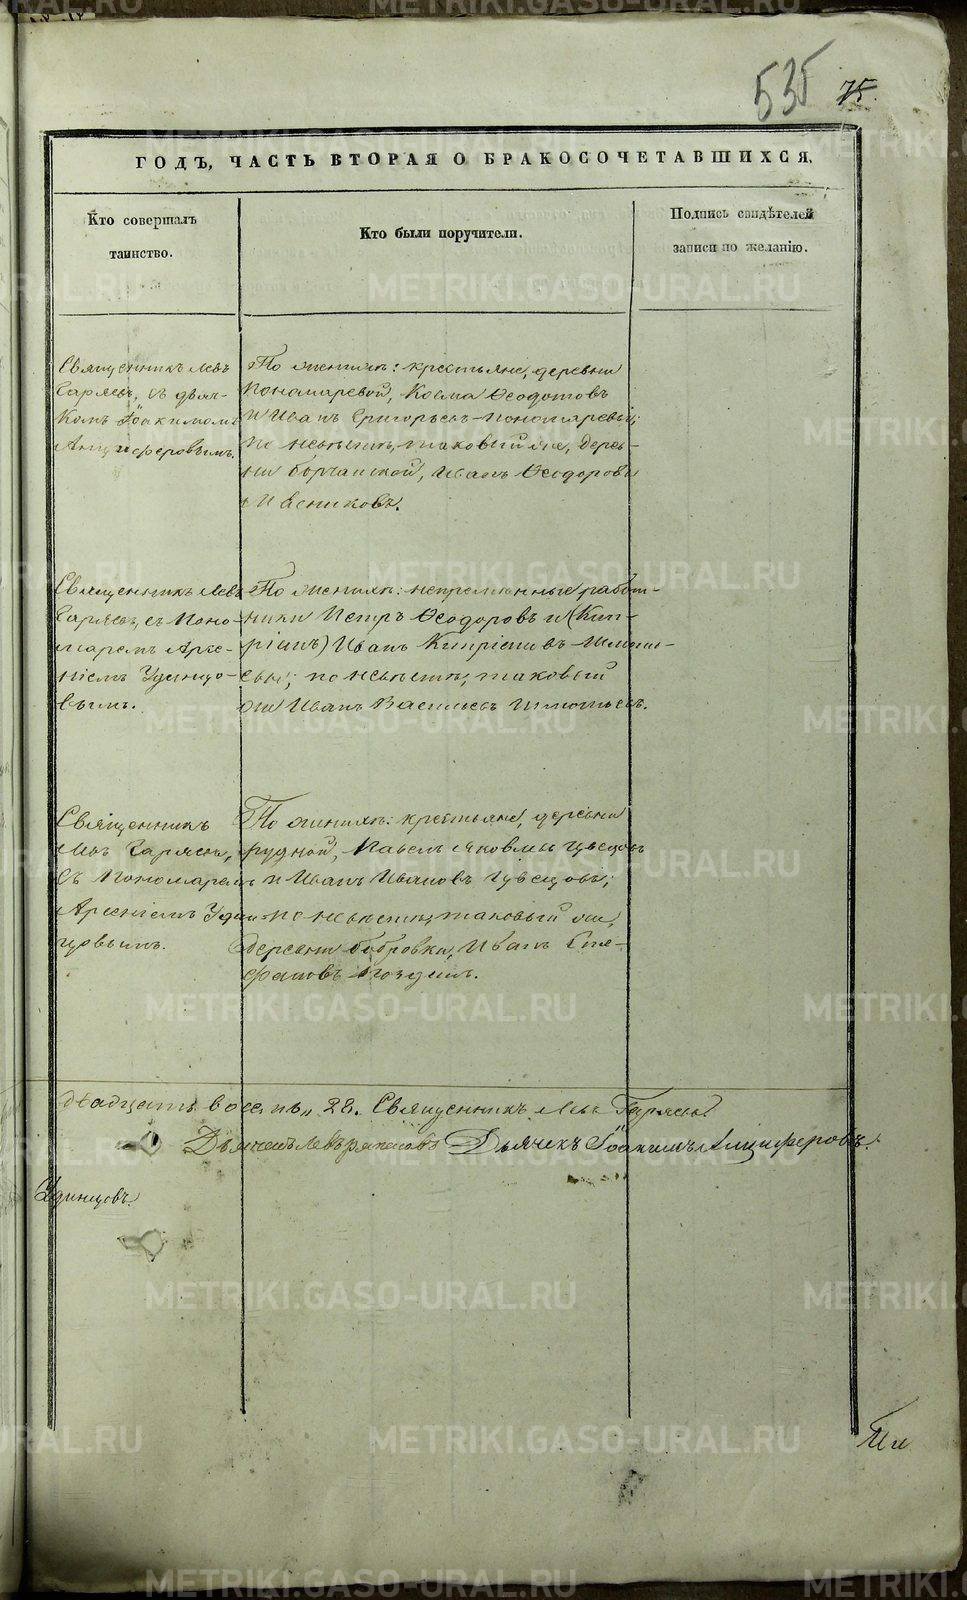 535 75.
ГОДЪ, ЧАСТЬ ВТОРАЯ О БРАКОСОЧЕТАВШИХСЯ.
Кто совершалъ
таинство.
Кто были поручители.
Подпись свидѣтелей
записи по желанію.
Священникъ Левъ
Гаряевъ, съ дьяч-
комъ Іоакимомъ
Анциферовымъ.
По женихѣ: крестьяне, деревни
Пономаревой, Косма Ѳеодотовъ
и Иванъ Григорьевъ Пономаревы;
по невѣстѣ, таковый же, дерев-
ни Иванъ Ѳеодоровъ
Священникъ Левъ
Гаряевъ, съ Поно-
маремъ Арсе-
ніемъ Удинцо-
вымъ.
По женихѣ: непремѣнные работ-
ники Петръ Ѳеодоровъ и (Кип-
ріанъ) Иванъ Кипріановъ
по невѣстѣ, таковый
же Иванъ Васильевъ
Священникъ
Левъ Гаряевъ,
съ Пономаремъ
Арсеніемъ Удин-
цовымъ.
По женихѣ: крестьяне, деревни
Рудной, Павелъ Яковлевъ
и Иванъ Ивановъ
по невѣстѣ, таковый же,
деревни Бобровки, Иванъ Сте-
фановъ
двадцать восемь „28. Священникъ Левъ Гаряевъ
Дьячекъ Іоакимъ Анциферовъ.
Удинцовъ.
METRIKI.GASO-URAL.RU